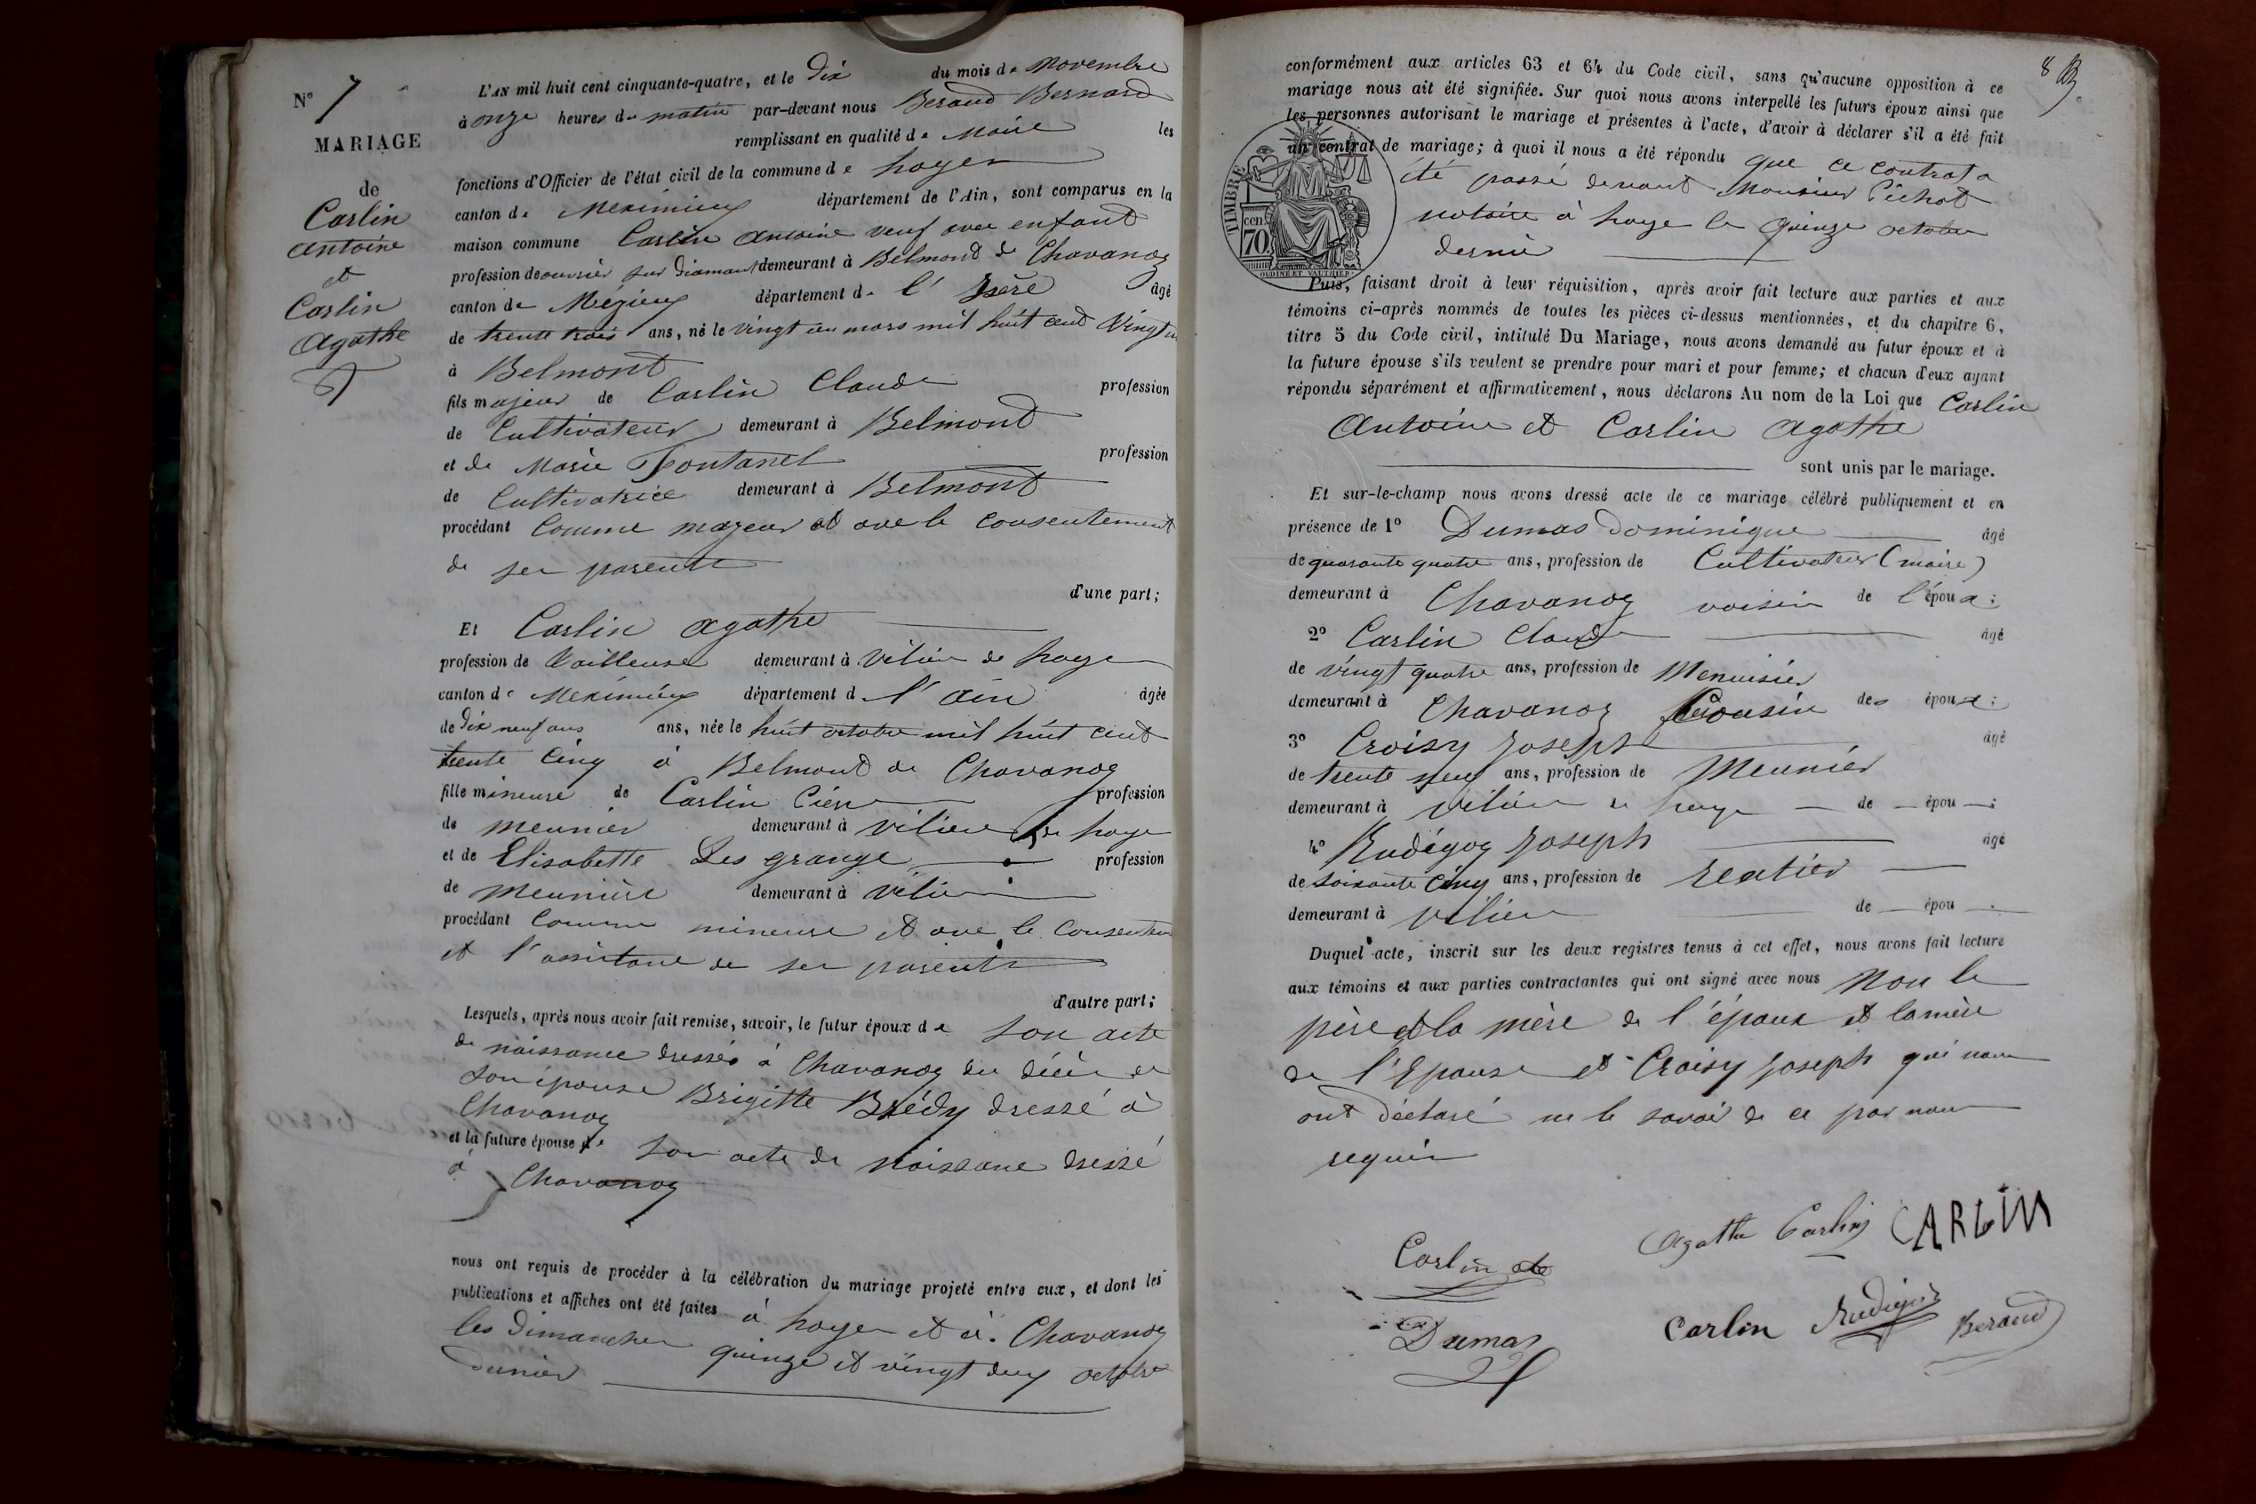 N° 7
MARIAGE
de
Carlin
Antoine
et
Carlin
Agathe
L'AN mil huit cent cinquante-quatre, et le Dix du mois de Novembre
à onze heures du matin par-devant nous Beraud Bernard
remplissant en qualité de Maire les
fonctions d'Officier de l'état civil de la commune de hoyes
canton de Meximieux département de l'Ain, sont comparus en la
maison commune Carlin Antoine veuf avec enfant
profession de ouvrier sur diamant demeurant à Belmont de Chavanoz
canton de Mezieux département de l'Isère âgé
de trente trois ans, né le vingt un mars mil huit cent vingt un
à Belmont
fils majeur de Carlin Claude profession
de Cultivateur demeurant à Belmont
et de Marie Fontanel profession
de Cultivatrice demeurant à Belmont
procédant comme majeur et avec le consentement
de ses parents
d'une part;
Et Carlin Agathe
profession de tailleuse demeurant à Vilieu de hoye
canton de Meximieux département d l'ain âgée
de dix neuf ans ans, née le huit octobre mil huit cent
trente cinq à Belmont de Chavanoz
fille mineure de Carlin Pierre profession
de meunier demeurant à vilieu de hoye
et de Elisabette Des grange profession
de meunière demeurant à vilieu
procédant comme mineure et avec le consentement
et l'assistance de ses parents
d'autre part;
Lesquels, après nous avoir fait remise, savoir, le futur époux de son acte
de naissance dressés à Chavanoz du décès de
son épouse Brigitte Brédy dressé à
Chavanoz
et la future épouse de son acte de naissance dressé
à Chavanoz
nous ont requis de procéder à la célébration du mariage projeté entre eux, et dont les
publications et affiches ont été faites à hoyes et à Chavanoz
les dimanches quinze et vingt deux octobre
dernier
8
conformément aux articles 63 et 64 du Code civil, sans qu'aucune opposition à ce
mariage nous ait été signifiée. Sur quoi nous avons interpellé les futurs époux ainsi que
les personnes autorisant le mariage et présentes à l'acte, d'avoir à déclarer s'il a été fait
un contrat de mariage; à quoi il nous a été répondu que ce contrat a
été passé devant Monsieur Pichot
notaire à hoye le quinze octobre
dernier
TIMBRE
cen
70
OUDINÉ ET VAUTHIER
Puis, faisant droit à leur réquisition, après avoir fait lecture aux parties et aux
témoins ci-après nommés de toutes les pièces ci-dessus mentionnées, et du chapitre 6,
titre 5 du Code civil, intitulé Du Mariage, nous avons demandé au futur époux et à
la future épouse s'ils veulent se prendre pour mari et pour femme; et chacun d'eux ayant
répondu séparément et affirmativement, nous déclarons Au nom de la Loi que Carlin
Antoine et Carlin Agathe
sont unis par le mariage.
Et sur-le-champ nous avons dressé acte de ce mariage célébré publiquement et en
présence de 1° Dumas Dominique âgé
de quarante quatre ans, profession de Cultivateur (maire)
demeurant à Chavanoz voisin de l'époux;
2° Carlin Claude âgé
de vingt quatre ans, profession de Menuisier
demeurant à Chavanoz Cousin des époux;
3° Croisy Joseph âgé
de trente neuf ans, profession de Meunier
demeurant à vilieu de hoye de épou ;
4° Rudigoz Joseph âgé
de soixante cinq ans, profession de rentier
demeurant à vilieu de épou .
Duquel acte, inscrit sur les deux registres tenus à cet effet, nous avons fait lecture
aux témoins et aux parties contractantes qui ont signé avec nous Non le
père et la mère de l'époux et la mère
de l'Epouse et Croisy Joseph qui nous
ont déclaré ne le savoir de ce par nous
requis
Carlin
Agathe Carlin CARLIN
Dumas
Carlin Rudigoz Beraud